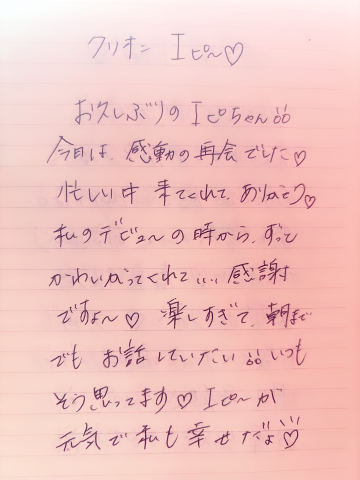 クリオネ Iピ〜♡
お久しぶりの Iピちゃん
今日は、感動の再会でした♡
忙しい中 来てくれて、ありがとう♡
私のデビューの時から、ずっと
かわいがってくれて、、、感謝
ですよ〜♡ 楽しすぎて、朝まで
でも お話していたい いつも
そう思ってます♡ Iピ〜が
元気で私も幸せだよ♡